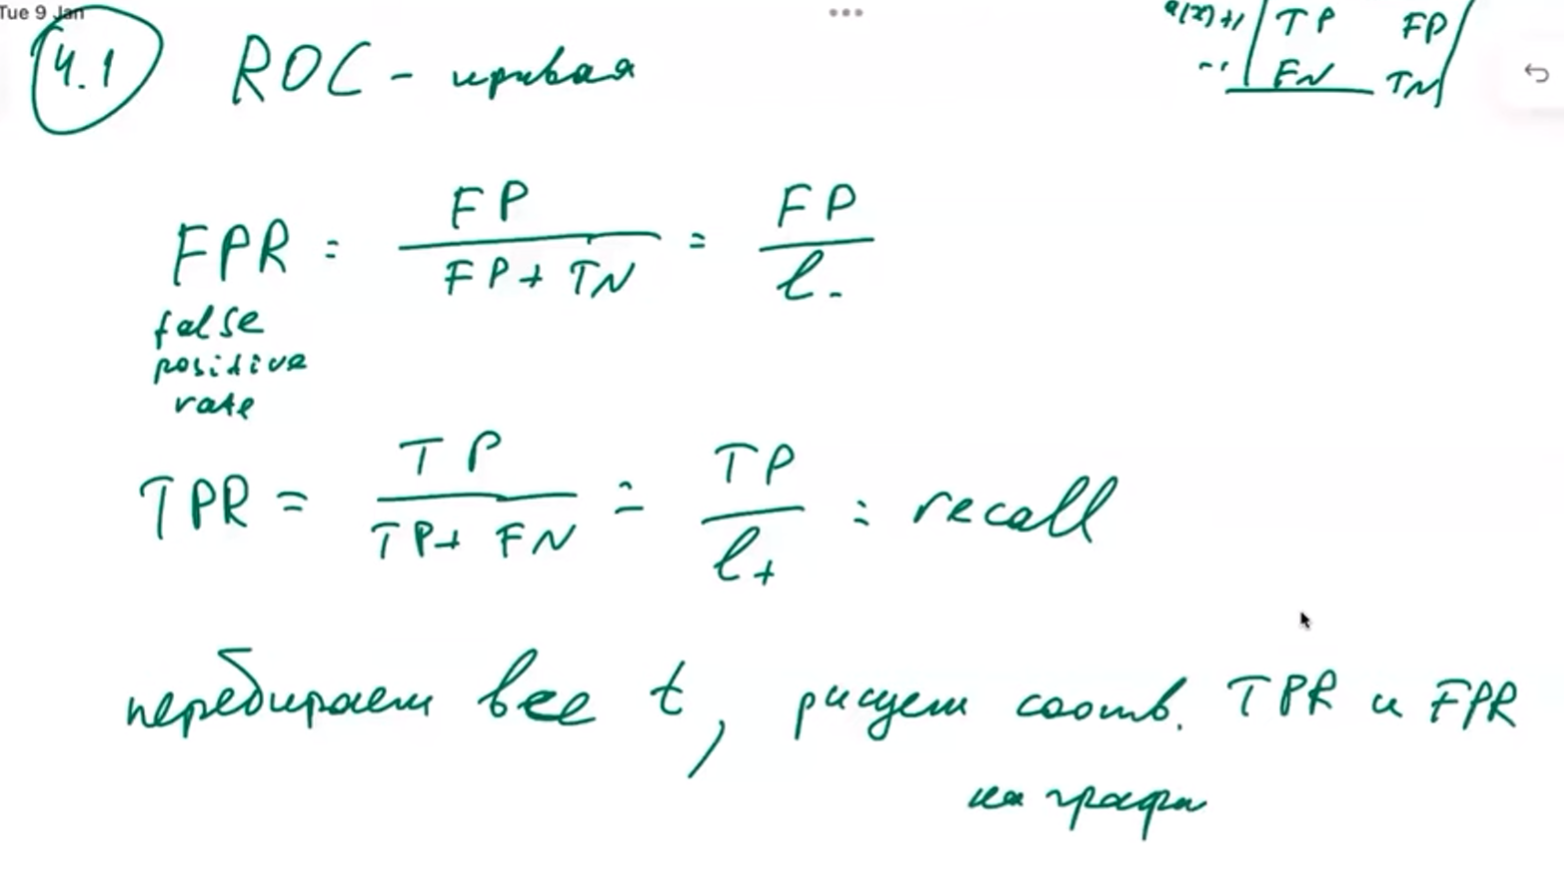 Tue 9 Jan
4.1 ROC - кривая
a(x) +1 TP FP
-1 FN TN
FPR = FP / FP + TN = FP / ℓ-
false
positive
rate
TPR = TP / TP + FN = TP / ℓ+ = recall
перебираем все t, рисуем соотв. TPR и FPR
на графи